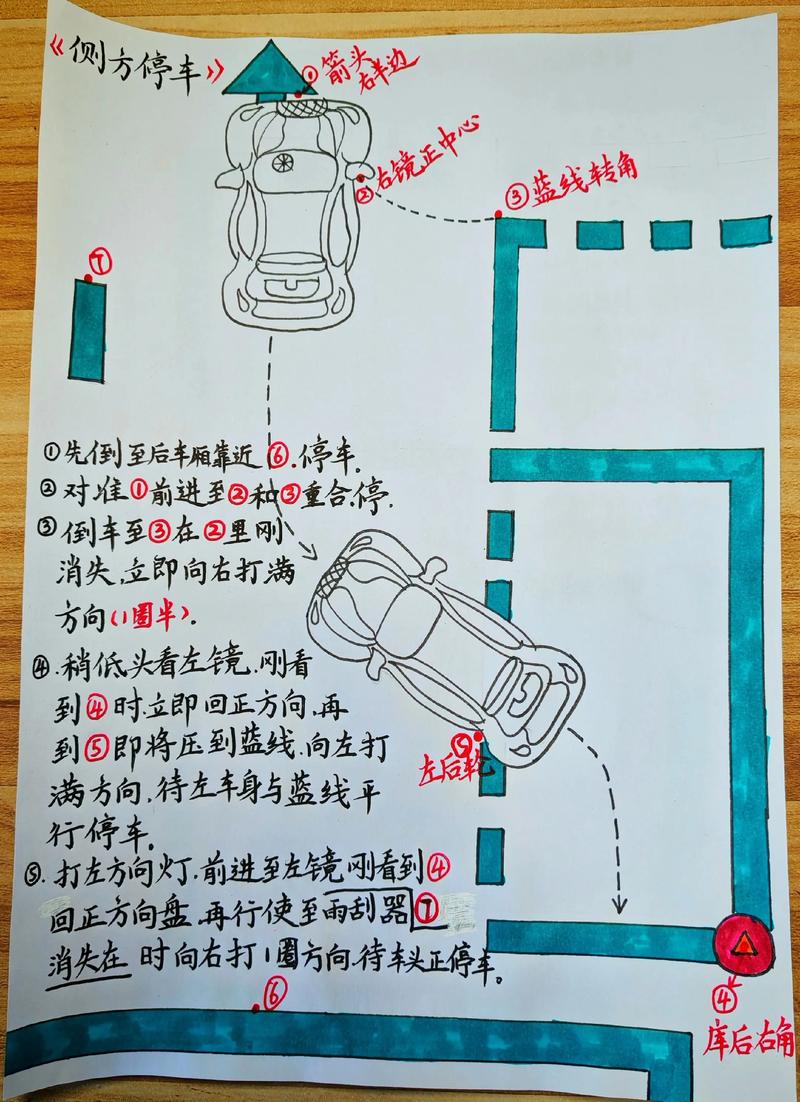 《侧方停车》
①箭头
右半边
②右镜正中心
③蓝线转角
⑦
①先倒至后车厢靠近⑥.停车.
②对准①前进至②和③重合.停.
③倒车至③在②里刚
消失.立即向右打满
方向(1圈半).
④.稍低头看左镜.刚看
到④时.立即回正方向.再
到⑤即将压到蓝线.向左打
满方向.待左车身与蓝线平
行停车。
⑤
左后轮
⑤.打左方向灯.前进至左镜刚看到④
回正方向盘.再行使至雨刮器⑦
消失在 时向右打1圈方向.待车头正停车。
⑥
④
库后右角